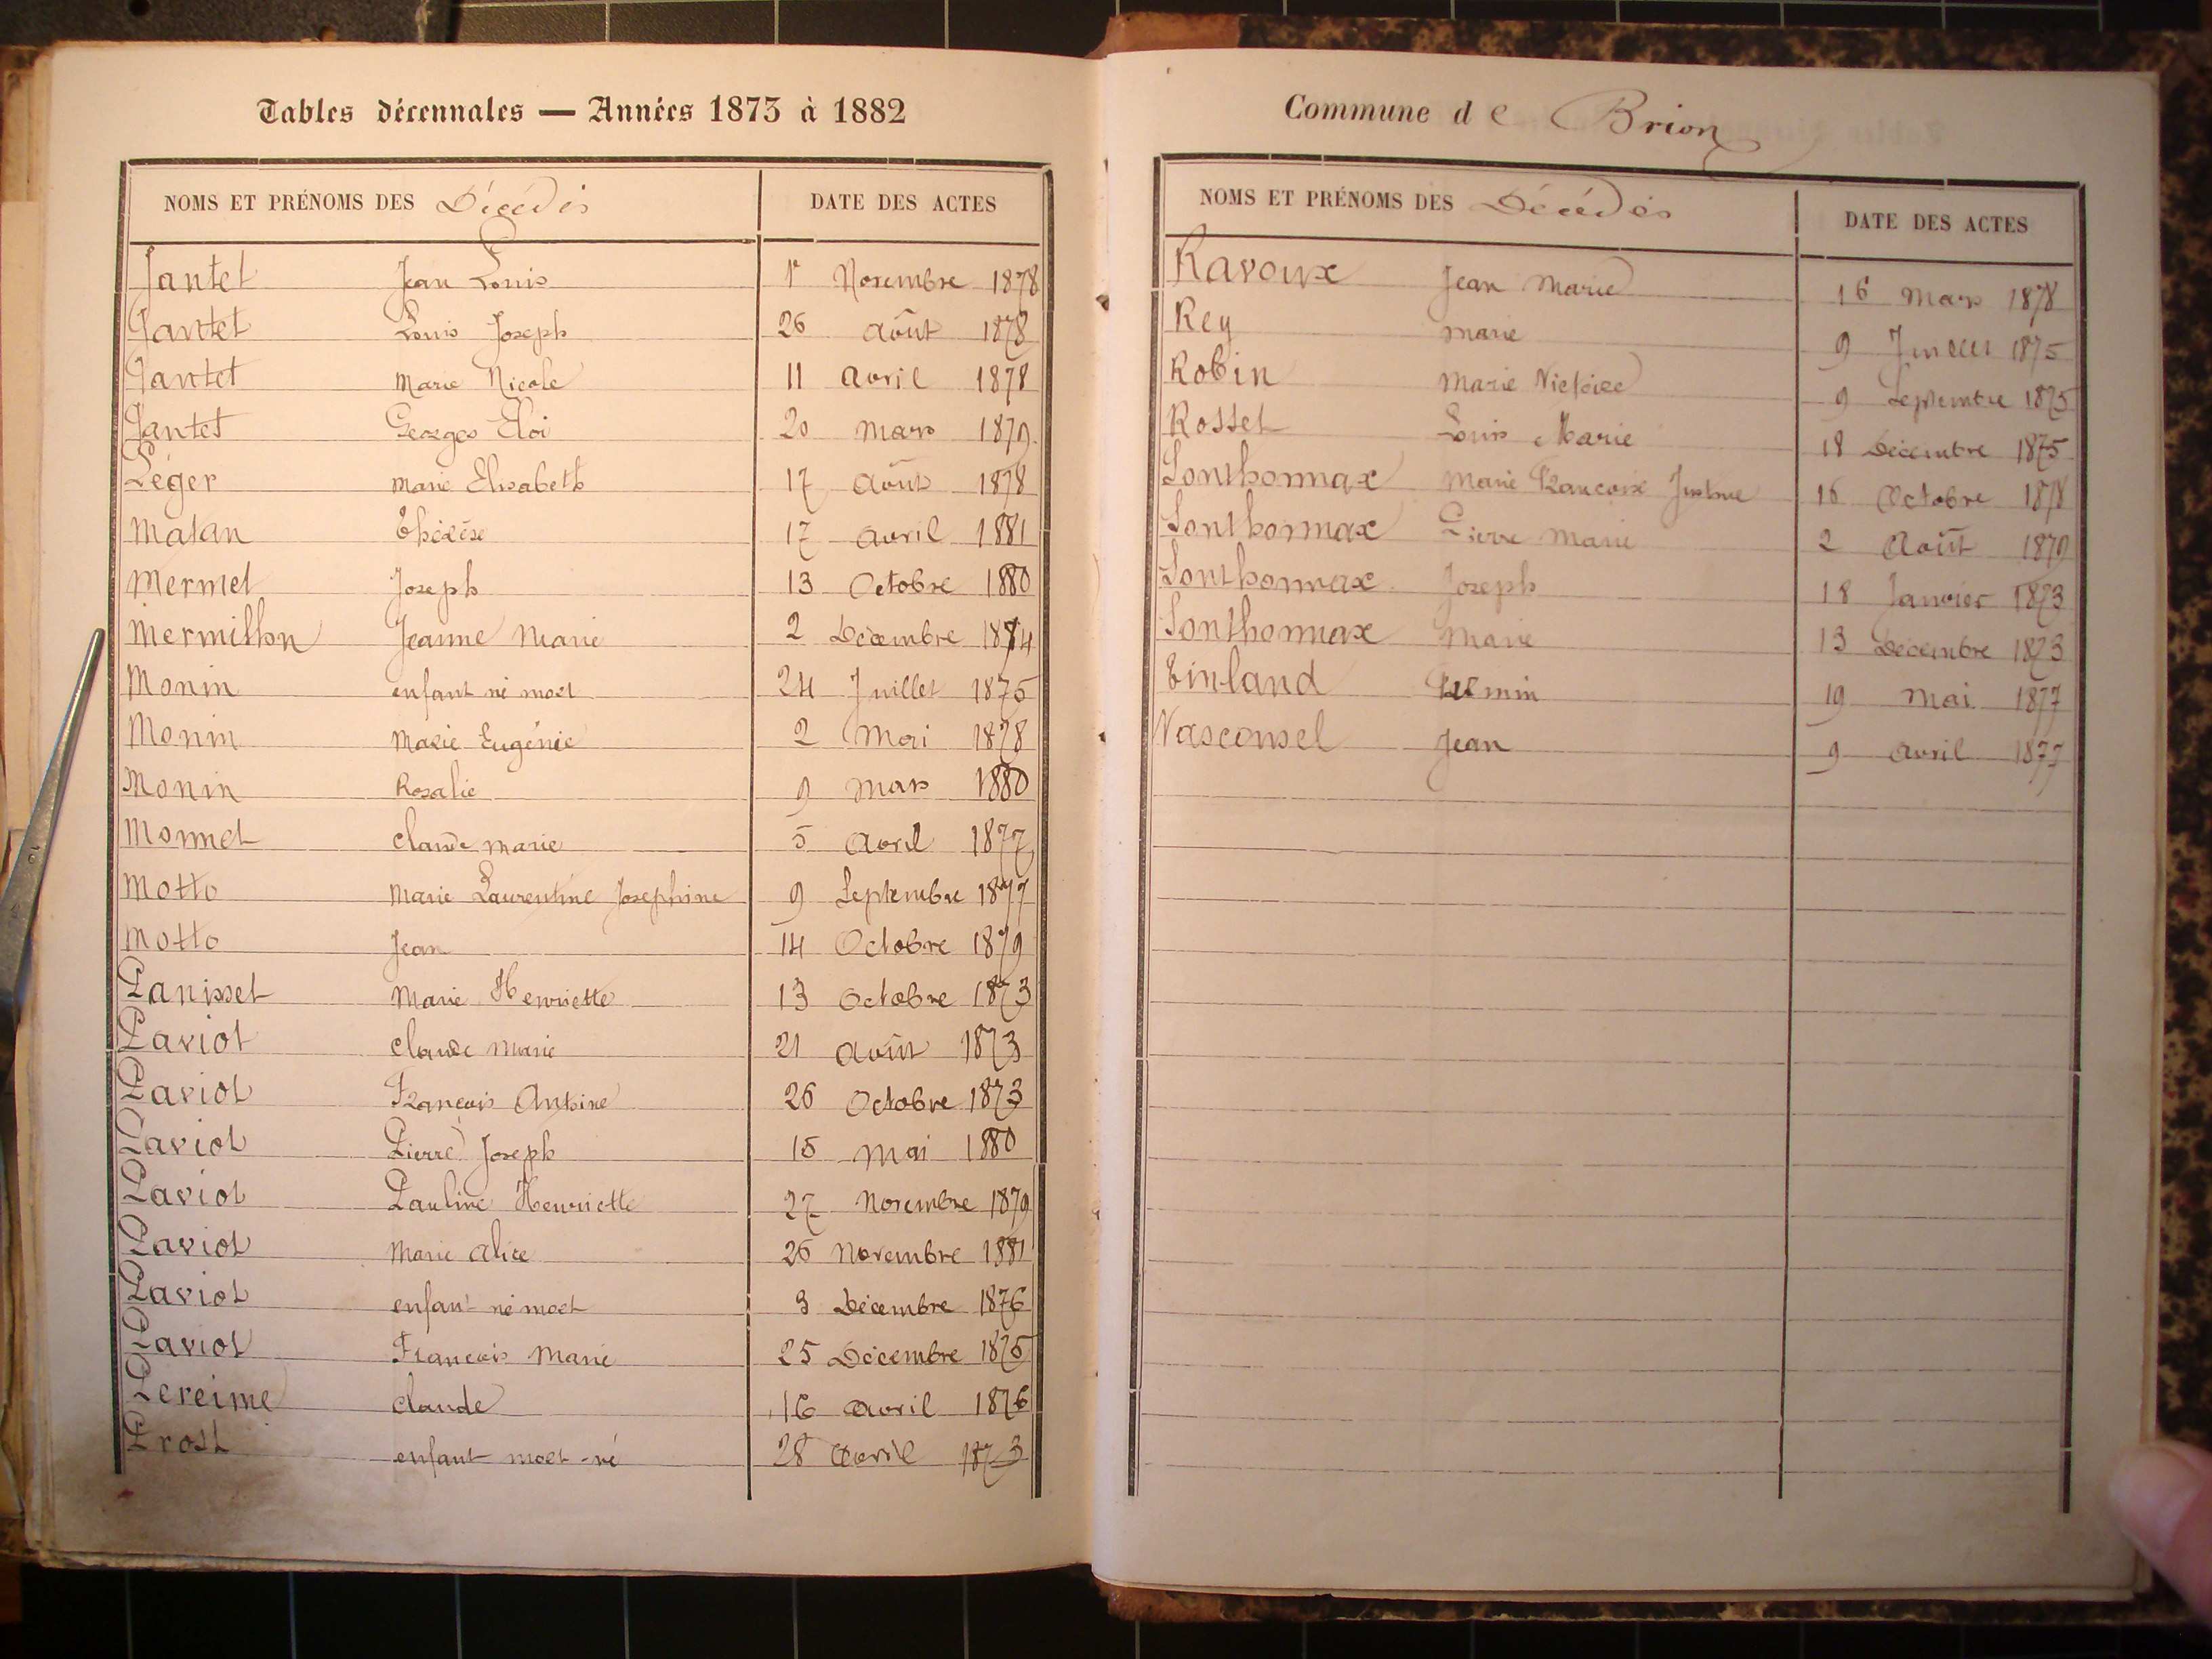 Tables décennales — Années 1873 à 1882
NOMS ET PRÉNOMS DES Décédés DATE DES ACTES
Jantet Jean Louis 1r Novembre 1878
Jantet Louis Joseph 26 août 1878
Jantet Marie Nicole 11 avril 1878
Jantet Georges Eloi 20 mars 1879
Léger marie Elisabeth 17 août 1878
Matan Thérèse 17 avril 1881
Mermet Joseph 13 Octobre 1880
Mermillon Jeanne Marie 2 Décembre 1874
Monin enfant né mort 24 Juillet 1875
Monin Marie Eugénie 2 Mai 1878
Monin Rosalie 9 Mars 1880
Monnet Claude marie 5 Avril 1877
Motto Marie Laurentine Josephine 9 Septembre 1877
Motto Jean 14 Octobre 1879
Panisset Marie Henriette 13 Octobre 1873
Paviot Claude Marie 21 août 1873
Paviot François Antoine 26 Octobre 1873
Paviot Pierre Joseph 15 Mai 1880
Paviot Pauline Henriette 27 Novembre 1879
Paviot Marie alice 26 Novembre 1881
Paviot enfant né mort 3 Décembre 1876
Paviot François Marie 25 Décembre 1875
Pereime Claude 16 avril 1876
Prost enfant mort-né 28 avril 1873
Commune de Brion
NOMS ET PRÉNOMS DES Décédés DATE DES ACTES
Ravoux Jean Marie 16 Mars 1878
Rey Marie 9 Juillet 1875
Robin Marie Victoire 9 Septembre 1875
Rosset Louis Marie 18 Décembre 1875
Sonthonnax Marie Françoise Justine 16 Octobre 1878
Sonthonnax Pierre Marie 2 Août 1879
Sonthonnax Joseph 18 Janvier 1873
Sonthonnax Marie 13 Décembre 1873
Tinland 19 Mai 1877
Vasconsel Jean 9 avril 1877